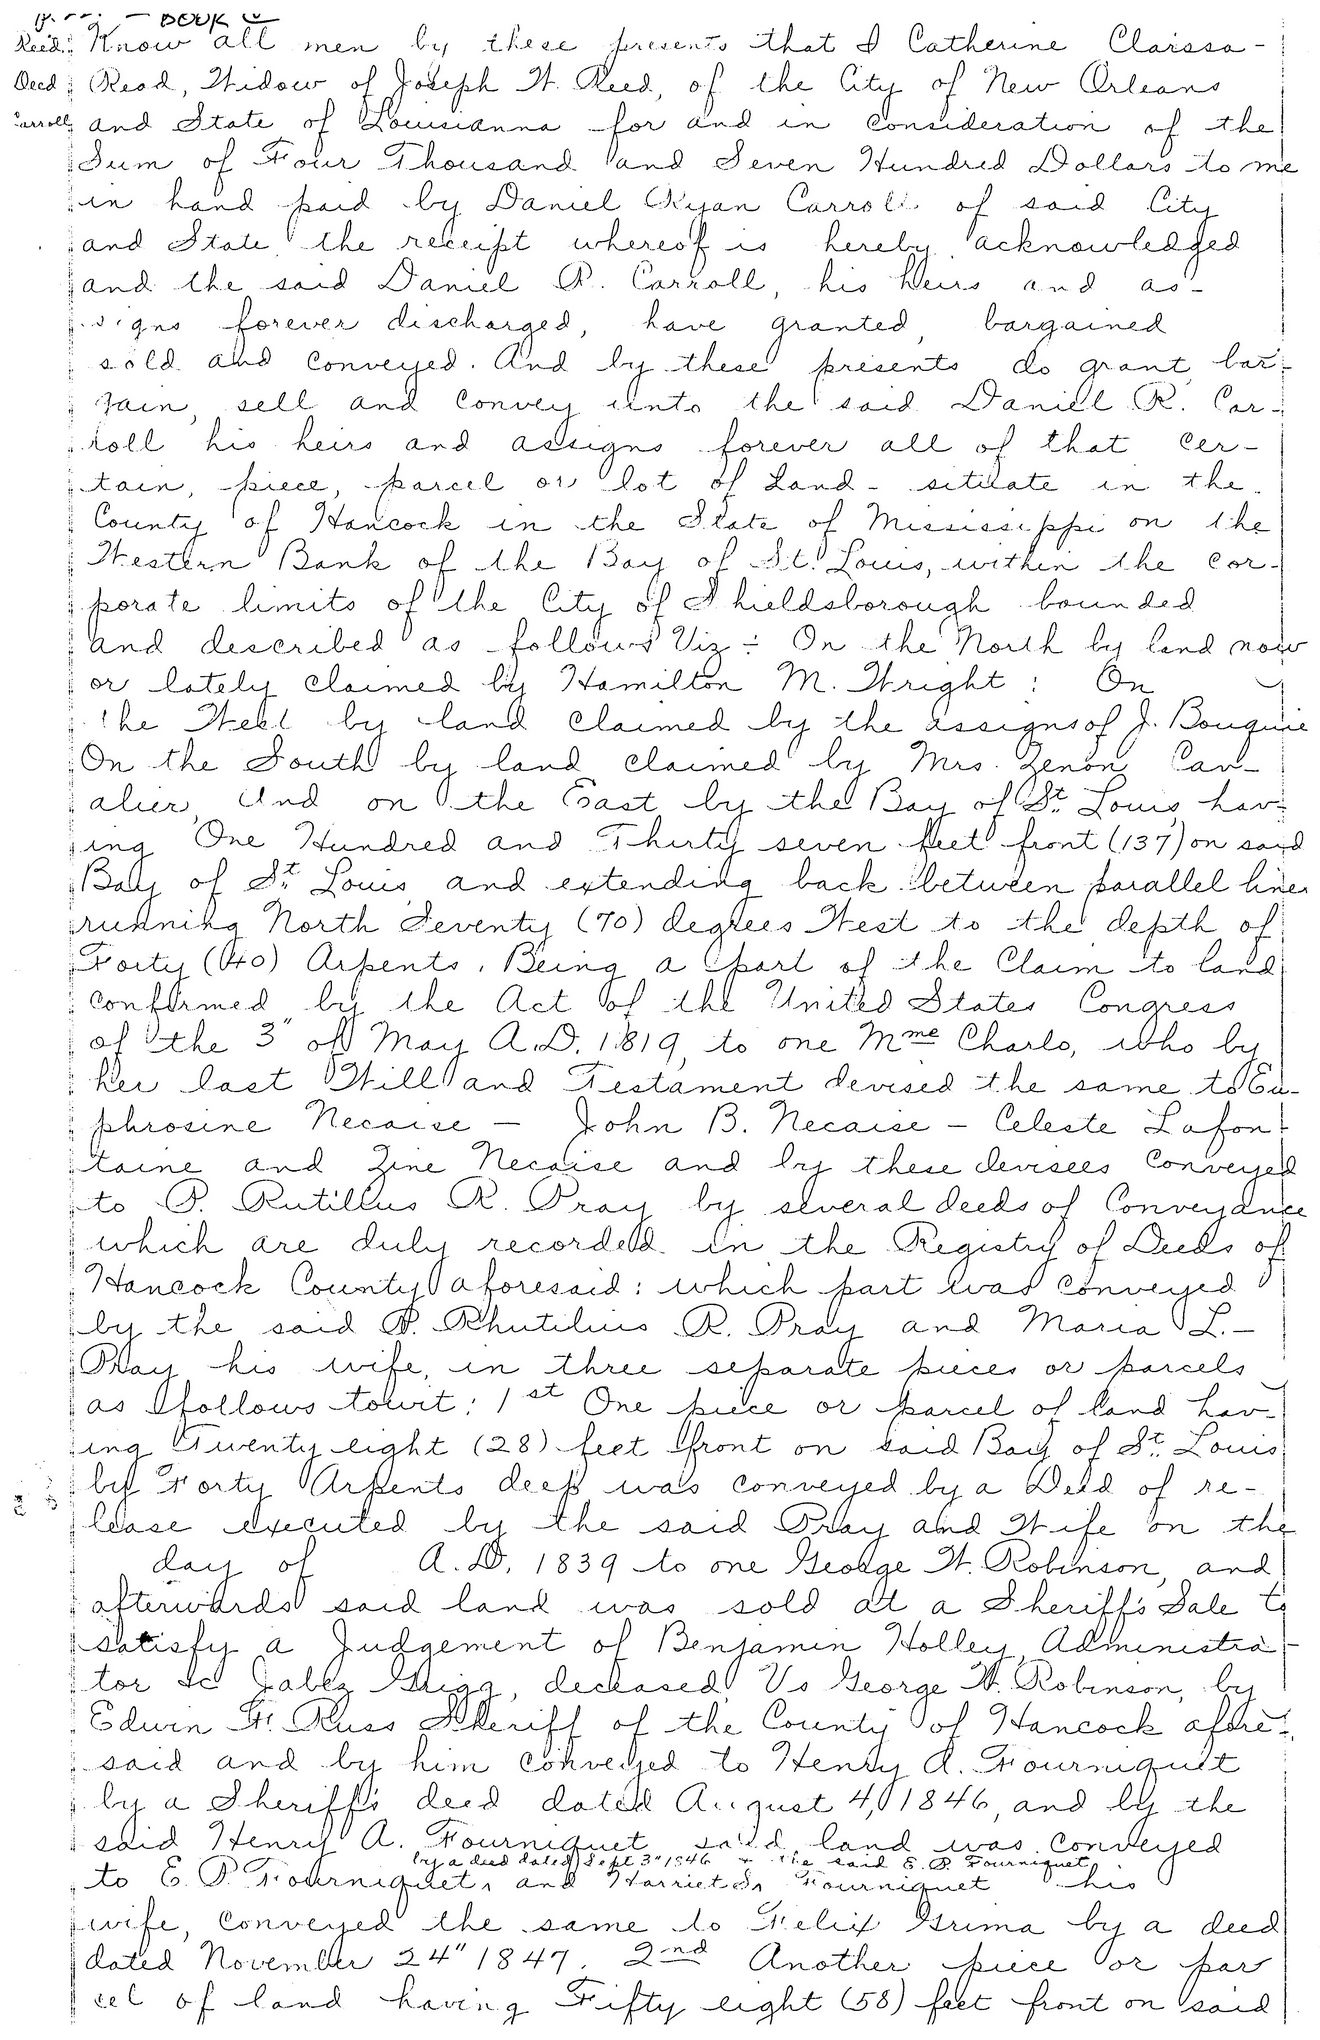 BOOK
Reed Know all men by these presents that I Catherine Claissa-
Deed Read, Widow of Joseph W. Reed, of the City of New Orleans
Carroll and State of Louisianna for and in consideration of the
Sum of Four Thousand and Seven Hundred Dollars to me
in hand paid by Daniel Ryan Carroll of said City
and State, the receipt whereof is hereby acknowledged
and the said Daniel R. Carroll, his heirs and as-
signs forever discharged, have granted, bargained
sold and conveyed. And by these presents do grant, bar-
gain, sell and convey unto the said Daniel R. Car-
roll his heirs and assigns forever all of that cer-
tain, piece, parcel or lot of Land- situate in the
County of Hancock in the State of Mississippi on the
Western Bank of the Bay of St. Louis, within the cor-
porate limits of the City of Shieldsborough bounded
and described as follows Viz: On the North by land now
or lately claimed by Hamilton M. Wright: On
the West by land claimed by the assigns of J. Bouquie
On the South by land claimed by Mrs. Zenon Cav-
alier, And on the East by the Bay of St. Louis, hav-
ing One Hundred and Thirty seven feet front (137) on said
Bay of St. Louis, and extending back between parallel lines
running North Seventy (70) degrees West to the depth of
Forty (40) Arpents. Being a part of the Claim to land
confirmed by the Act of the United States Congress
of the 3" of May A.D. 1819, to one Mme Charlo, who by
her last Will and Testament devised the same to Eu-
phrosine Necaise - John B. Necaise - Celeste Lafon-
taine and Zine Necaise and by these devisees conveyed
to P. Rutillus R. Pray by several deeds of Conveyance
which are duly recorded in the Registry of Deeds of
Hancock County aforesaid: which part was conveyed
by the said P. Rhutilius R. Pray and Maria L.-
Pray his wife, in three separate pieces or parcels
as follows towit: 1st One piece or parcel of land hav-
ing Twenty eight (28) feet front on said Bay of St. Louis
by Forty Arpents deep was conveyed by a Deed of re-
lease executed by the said Pray and Wife on the
day of A.D. 1839 to one George W. Robinson, and
afterwards said land was sold at a Sheriff's Sale to
satisfy a Judgement of Benjamin Holley, Administra-
tor &c Jabez Grigg, deceased, Vs George W. Robinson, by
Edwin F. Russ Sheriff of the County of Hancock afore-
said and by him conveyed to Henry A. Fourniquet
by a Sheriff's deed dated August 4, 1846, and by the
said Henry A. Fourniquet said land was conveyed
by a deed dated Sept 3" 1846 & the said E. P. Fourniquet
to E. P. Fourniquet, and Harriet S. Fourniquet his
wife, conveyed the same to Felix Grima by a deed
dated November 24" 1847. 2nd Another piece or par
cel of land having Fifty eight (58) feet front on said